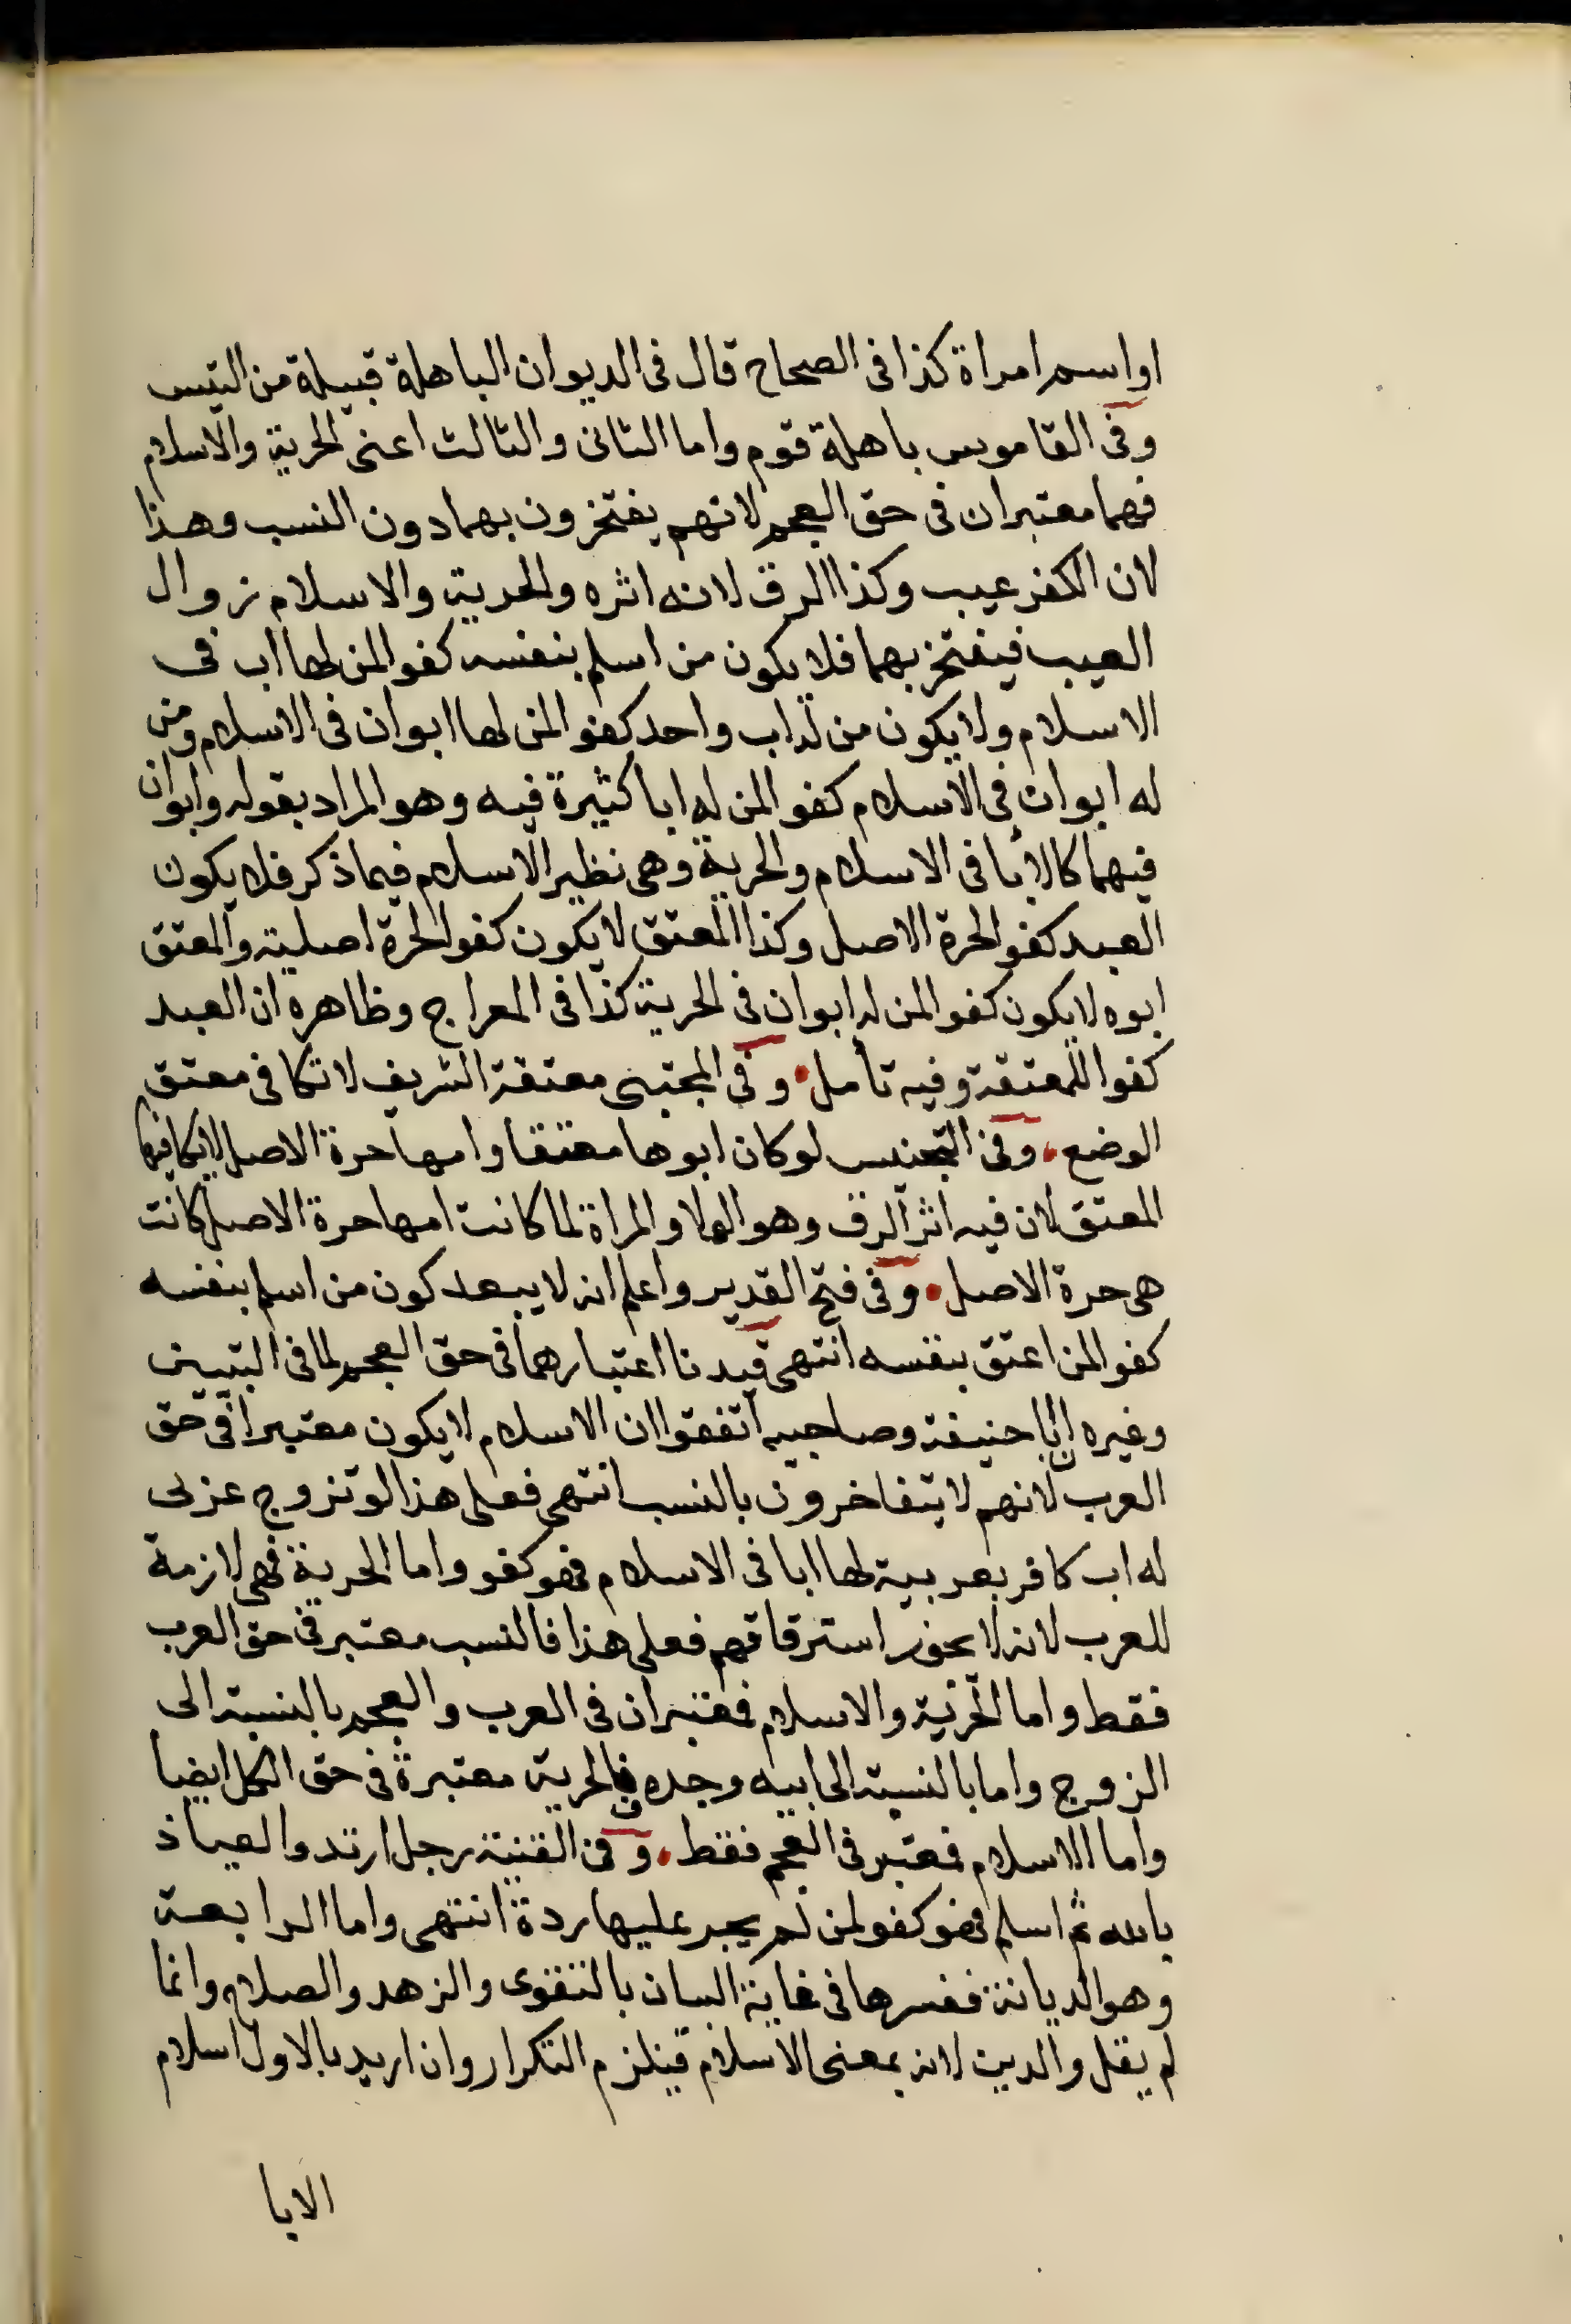 او اسم امراة كذا فى الصحاح قال فى الديوان الباهلة قبيلة من التيس
وفى القاموس باهلة قوم واما الثانى والثالث اعنى الحرية والاسلام
فهما معتبران فى حق العجم لانهم يفتخرون بهما دون النسب وهذا
لان الكفر عيب وكذا الرق لانه اثره والحرية والاسلام زوال
العيب فيفتخر بهما فلا يكون من اسلم بنفسه كفوا لمن لها اب فى
الاسلام ولا يكون من له اب واحد كفوا لمن لها ابوان فى الاسلام ومن
له ابوان فى الاسلام كفو المن له ابا كثيرة فيه وهو المراد بقوله وابوان
فيهما كالأبا فى الاسلام والحرية وهى نظير الاسلام فيما ذكر فلا يكون
العبد كفو الحرة الاصل وكذا المعتق لا يكون كفو الحرة اصلية والمعتق
ابوه لا يكون كفوا لمن له ابوان فى الحرية كذا فى المعراج وظاهره ان العبد
كفوا للمعتقة وفيه تأمل وفى المجتبى معتقة الشريف لا تكافى معتق
الوضع وفى التجنيس لو كان ابوها معتقا وامها حرة الاصل لا يكافيها
المعتق لان فيه اثر الرق وهو الولا والمراة لما كانت امها حرة الاصل كانت
هى حرة الاصل وفى فتح القدير واعلم انه لا يبعد كون من اسلم بنفسه
كفوا لمن اعتق بنفسه انتهى قيدنا اعتبارهما فى حق العجم لما فى التبيين
وغيره ان ابا حنيفة وصاحبيه اتفقوا ان الاسلام لا يكون معتبرا فى حق
العرب لانهم لا يتفاخرون بالنسب انتهى فعلى هذا لو تزوج عربى
له اب كافر بعربية لها ابا فى الاسلام فهو كفو واما الحرية فهى لازمة
للعرب لانه لا يجوز استرقاقهم فعلى هذا فالنسب معتبر فى حق العرب
فقط واما الحرية والاسلام فمعتبران فى العرب والعجم بالنسبة الى
الزوج واما بالنسبة الى ابيه وجده فالحرية معتبرة فى حق الكل ايضا
واما الاسلام فمعتبر فى العجم فقط وفى القنية رجل ارتد والعياذ
بالله ثم اسلم فهو كفو لمن لم يجر عليها ردة انتهى واما الرابعة
وهو الديانة ففسرها فى غاية البيان بالتقوى والزهد والصلاح وانما
لم يقل والدين لانه بمعنى الاسلام فيلزم التكرار وان اريد بالاول اسلام
الابا